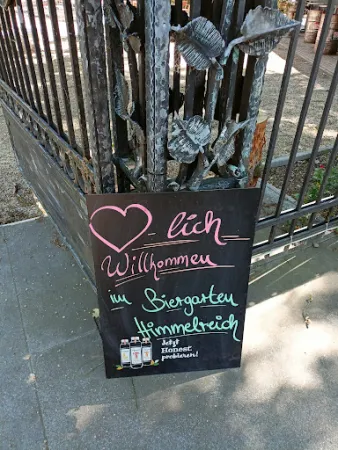 lich
Willkommen
im Biergarten
Himmelreich
Jetzt
Honest
probieren!